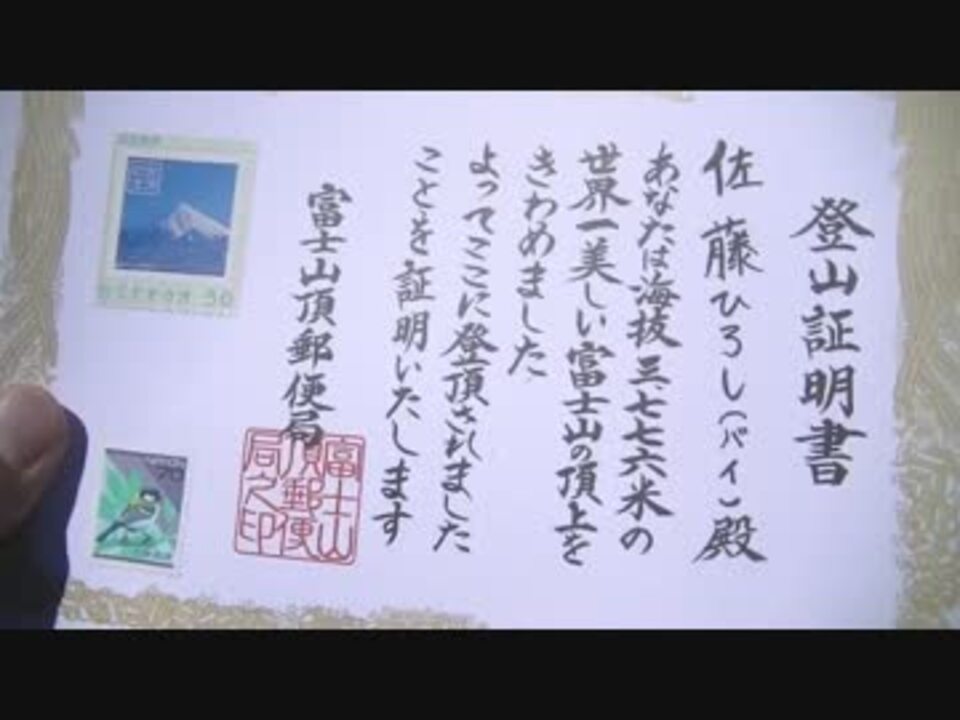 登山証明書
佐藤ひろし(バイ)殿
あなたは海抜三、七七六米の
世界一美しい富士山の頂上を
きわめました
よってここに登頂されました
ことを証明いたします
富士山頂郵便局
富士山
頂郵便
局之印
50
70